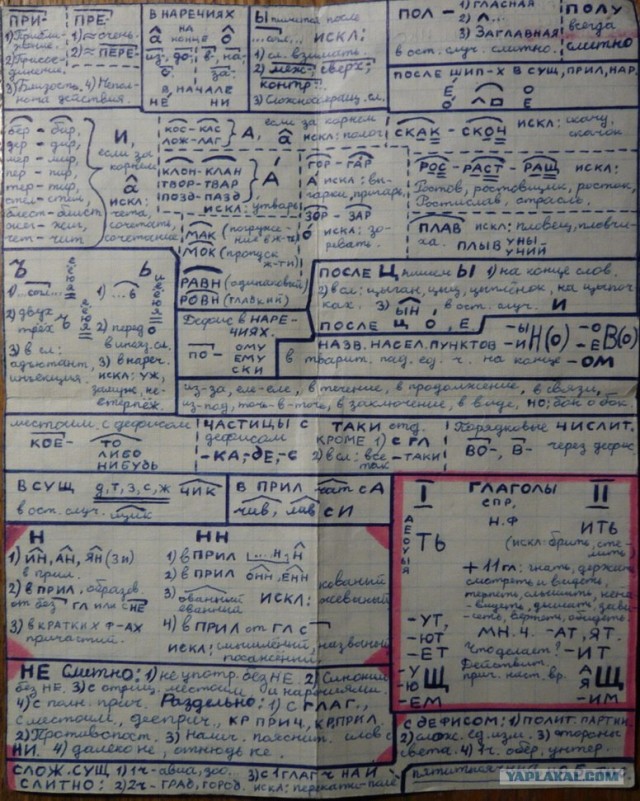 ПРИ-
1) Приближение.
2) Присоединение.
3) Близость. 4) Неполнота действия.
ПРЕ-
1) ≈ очень
2) ≈ ПЕРЕ-
В НАРЕЧИЯХ
на конце
а о
из-, до- в-, на-
за-
В НАЧАЛЕ
НЕ НИ
Ы пишется после
...согл. ИСКЛ:
1) сл. взимать
2) меж- сверх-
контр-
3) Сложносокращ. сл.
ПОЛ - 1) ГЛАСНАЯ
2) Л...
3) ЗАГЛАВНАЯ
в ост. случ. слитно.
ПОЛУ
всегда
слитно
ПОСЛЕ ШИП-Х В СУЩ, ПРИЛ, НАР.
Е О
О
бер - бир,
дер - дир,
мер - мир,
пер - пир,
тер - тир,
стел - стил,
блест - блист
жег - жиг,
чет - чит
И,
если за
корнем
а
искл:
чета,
сочетать,
сочетание
КОС - КАС
ЛОЖ - ЛАГ
А, если за корнем
а
искл: полог
КЛОН - КЛАН
ТВОР - ТВАР
ПОЗД - ПАЗД
А
ИСКЛ: утварь
МАК (погружение в ж-ть)
МОК (пропуск ж-ти)
РАВН (одинаковый)
РОВН (гладкий)
ГОР - ГАР
А искл: выгарки, пригарь.
ЗОР - ЗАР
О искл: зоревать.
СКАК - СКОЧ искл: скачу,
скачок.
РОС - РАСТ - РАЩ искл:
Ростов, ростовщик, росток,
Ростислав, отрасль.
ПЛАВ искл: пловец, пловчиха.
ПЛЫВУНЫ
УЧИЙ
Ъ
1) ...согл...
2) двух
трёх
3) в сл:
адъютант,
инъекция.
е ё ю я
Ь
1) ...в
2) перед
О
в иноз. сл.
3) в нареч.
искл: уж,
замуж, невтерпёж.
и е ё ю я
Дефис в НАРЕЧИЯХ.
ПО- ОМУ
ЕМУ
СКИ
ПОСЛЕ Ц пишем Ы 1) на конце слов.
2) в сл: цыган, цыц, цыплёнок, на цыпочках. 3) ЫН, в ост. случ. И
ПОСЛЕ Ц О, Е,
НАЗВ. НАСЕЛ. ПУНКТОВ -Ы -И Н(О) -О -Е В(О)
в творит. пад. ед. ч. на конце -ОМ
из-за, еле-еле, в течение, в продолжение, в связи,
из-под, точь-в-точь, в заключение, в виде, НО: бок о бок
местоим. с дефисом
КОЕ- -ТО
ЛИБО
НИБУДЬ
ЧАСТИЦЫ С
дефисом
-КА, -ДЕ, -С
ТАКИ отд.
КРОМЕ 1) С ГЛ
2) в сл: всё-таки
так
Порядковые ЧИСЛИТ.
ВО-, В- через дефис
В СУЩ д, т, з, с, ж ЧИК
в ост. случ. ЩИК
В ПРИЛ чат с А
чив, лив с И
Н
1) ИН, АН, ЯН (ЗИ)
в прил.
2) в ПРИЛ, образов.
от без ГЛ или с НЕ
3) в КРАТКИХ Ф-АХ
причастий.
НН
1) в ПРИЛ ...Н Н
2) в ПРИЛ ОНН, ЕНН
3) ованный
еванный
ИСКЛ: кованый
жеваный
4) в ПРИЛ от ГЛ с
искл: смышлёный, названый
посажёный.
I ГЛАГОЛЫ II
СПР.
Н.Ф
А Е О У Ы Я
ТЬ
ИТЬ
(искл: брить, стелить
+ 11 гл: гнать, держать
смотреть и видеть,
терпеть, слышать, ненавидеть, дышать, зависеть, вертеть, обидеть.
-УТ, МН.Ч. -АТ, ЯТ.
-ЮТ
-ЕТ Что делает? -ИТ
-У -Ю Щ Действит. прич. наст. вр. А Я Щ
-ЕМ -ИМ
НЕ Слитно: 1) не употр. без НЕ. 2) Синоним
без НЕ. 3) с отриц. местоим. и наречиями.
4) с полн. прич. Раздельно: 1) с ГЛАГ.,
с местоим., дееприч., КР ПРИЧ, КР ПРИЛ.
2) Противопост. 3) Налич. пояснит. слов с
НИ. 4) далеко не, отнюдь не.
С ДЕФИСОМ: 1) ПОЛИТ. ПАРТИИ
2) слож. ед. изм. 3) стороны
света. 4) 1 ч. обер, унтер.
СЛОЖ. СУЩ 1) 1 ч - авиа, зоо... 3) с 1 ГЛАГ Ч НА И
СЛИТНО: 2) 2 ч - ГРАД, ГОРОД. искл: перекати-поле
YAPLAKAL.COM